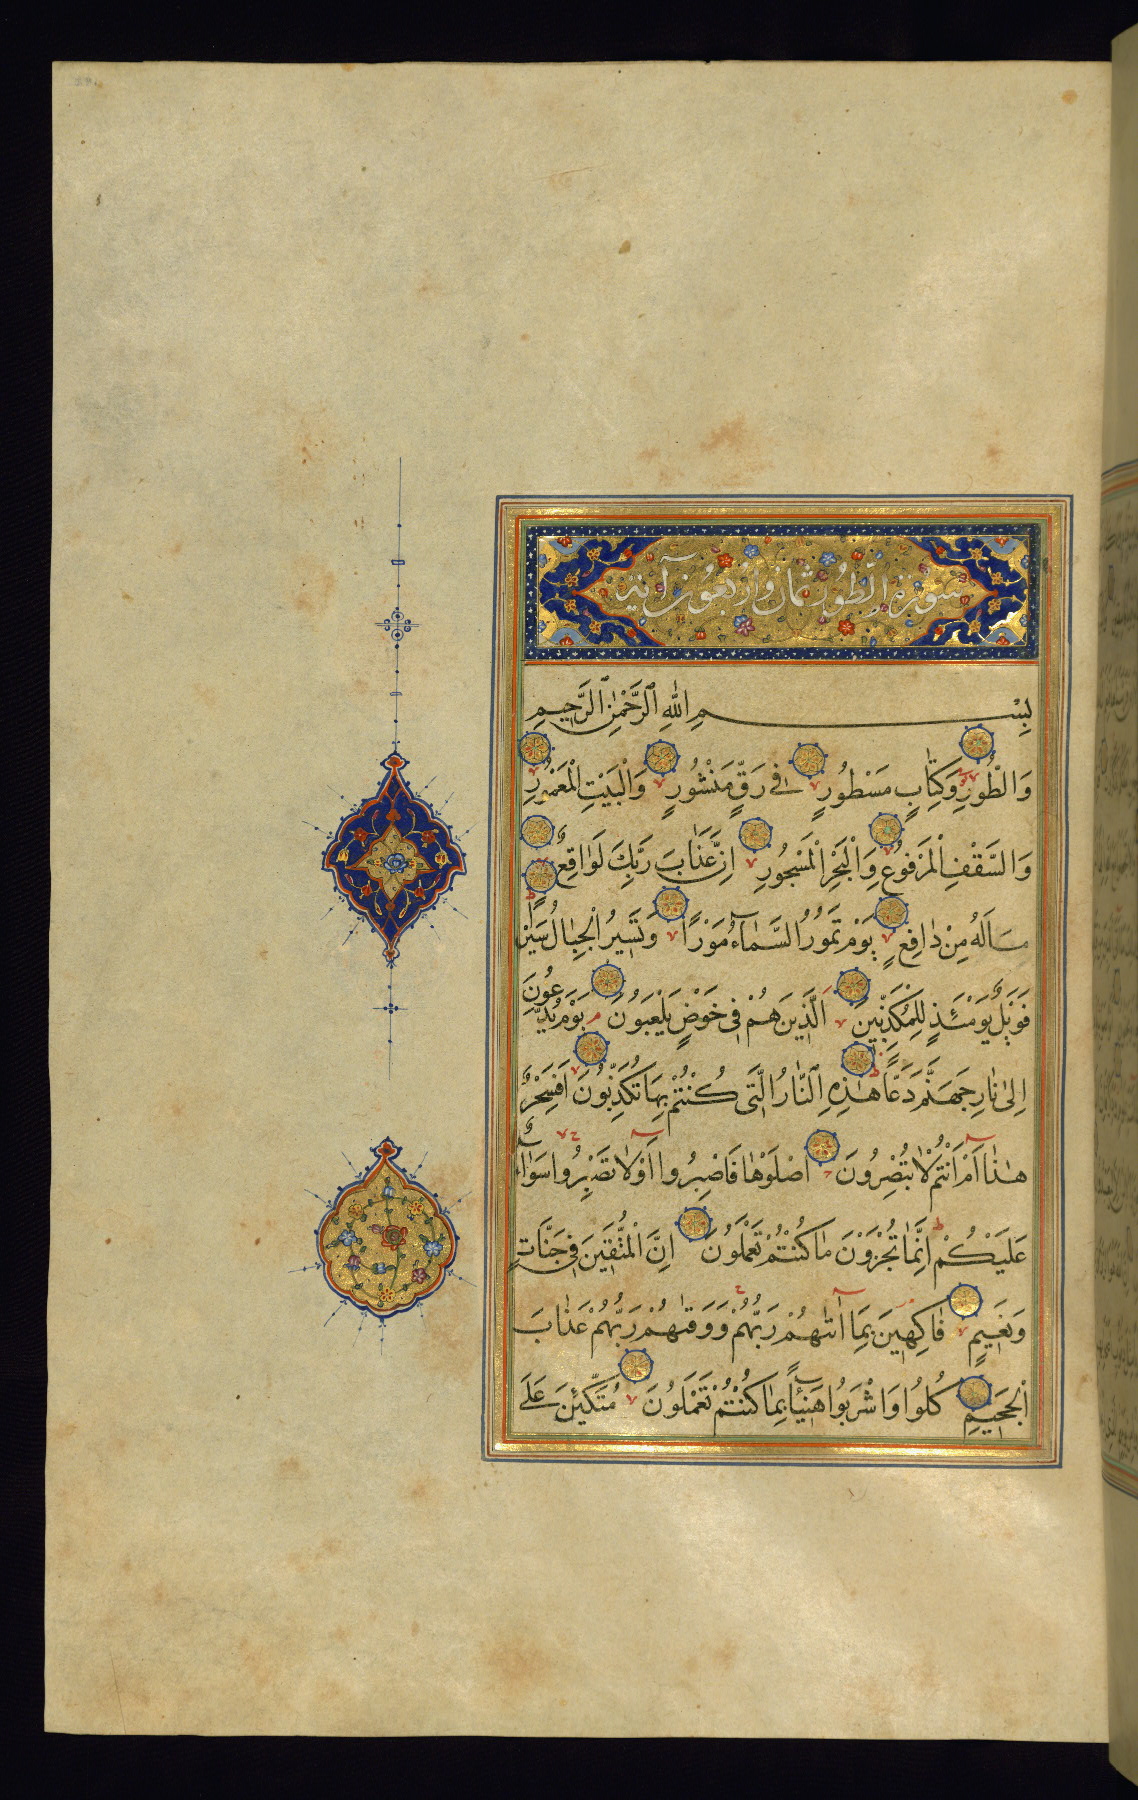 سورة الطور ثمان واربعون آية
بِسْمِ اللهِ الرَّحْمٰنِ الرَّحِيمِ
وَالطُّورِ وَكِتَابٍ مَسْطُورٍ فِي رَقٍّ مَنْشُورٍ وَالْبَيْتِ الْمَعْمُورِ
وَالسَّقْفِ الْمَرْفُوعِ وَالْبَحْرِ الْمَسْجُورِ اِنَّ عَذَابَ رَبِّكَ لَوَاقِعٌ
مَالَهُ مِنْ دَافِعٍ يَوْمَ تَمُورُ السَّمَاءُ مَوْرًا وَتَسِيرُ الْجِبَالُ سَيْرًا
فَوَيْلٌ يَوْمَئِذٍ لِلْمُكَذِّبِينَ اَلَّذِينَ هُمْ فِي خَوْضٍ يَلْعَبُونَ يَوْمَ يُدَعُّونَ
اِلٰى نَارِ جَهَنَّمَ دَعًّا هٰذِهِ النَّارُ الَّتِي كُنْتُمْ بِهَا تُكَذِّبُونَ اَفَسِحْرٌ
هٰذَا اَمْ اَنْتُمْ لَا تُبْصِرُونَ اصْلَوْهَا فَاصْبِرُوا اَوْ لَا تَصْبِرُوا سَوَاءٌ
عَلَيْكُمْ اِنَّمَا تُجْزَوْنَ مَا كُنْتُمْ تَعْمَلُونَ اِنَّ الْمُتَّقِينَ فِي جَنَّاتٍ
وَنَعِيمٍ فَاكِهِينَ بِمَا اٰتٰيهُمْ رَبُّهُمْ وَوَقٰيهُمْ رَبُّهُمْ عَذَابَ
الْجَحِيمِ كُلُوا وَاشْرَبُوا هَنِيئًا بِمَا كُنْتُمْ تَعْمَلُونَ مُتَّكِئِينَ عَلٰى